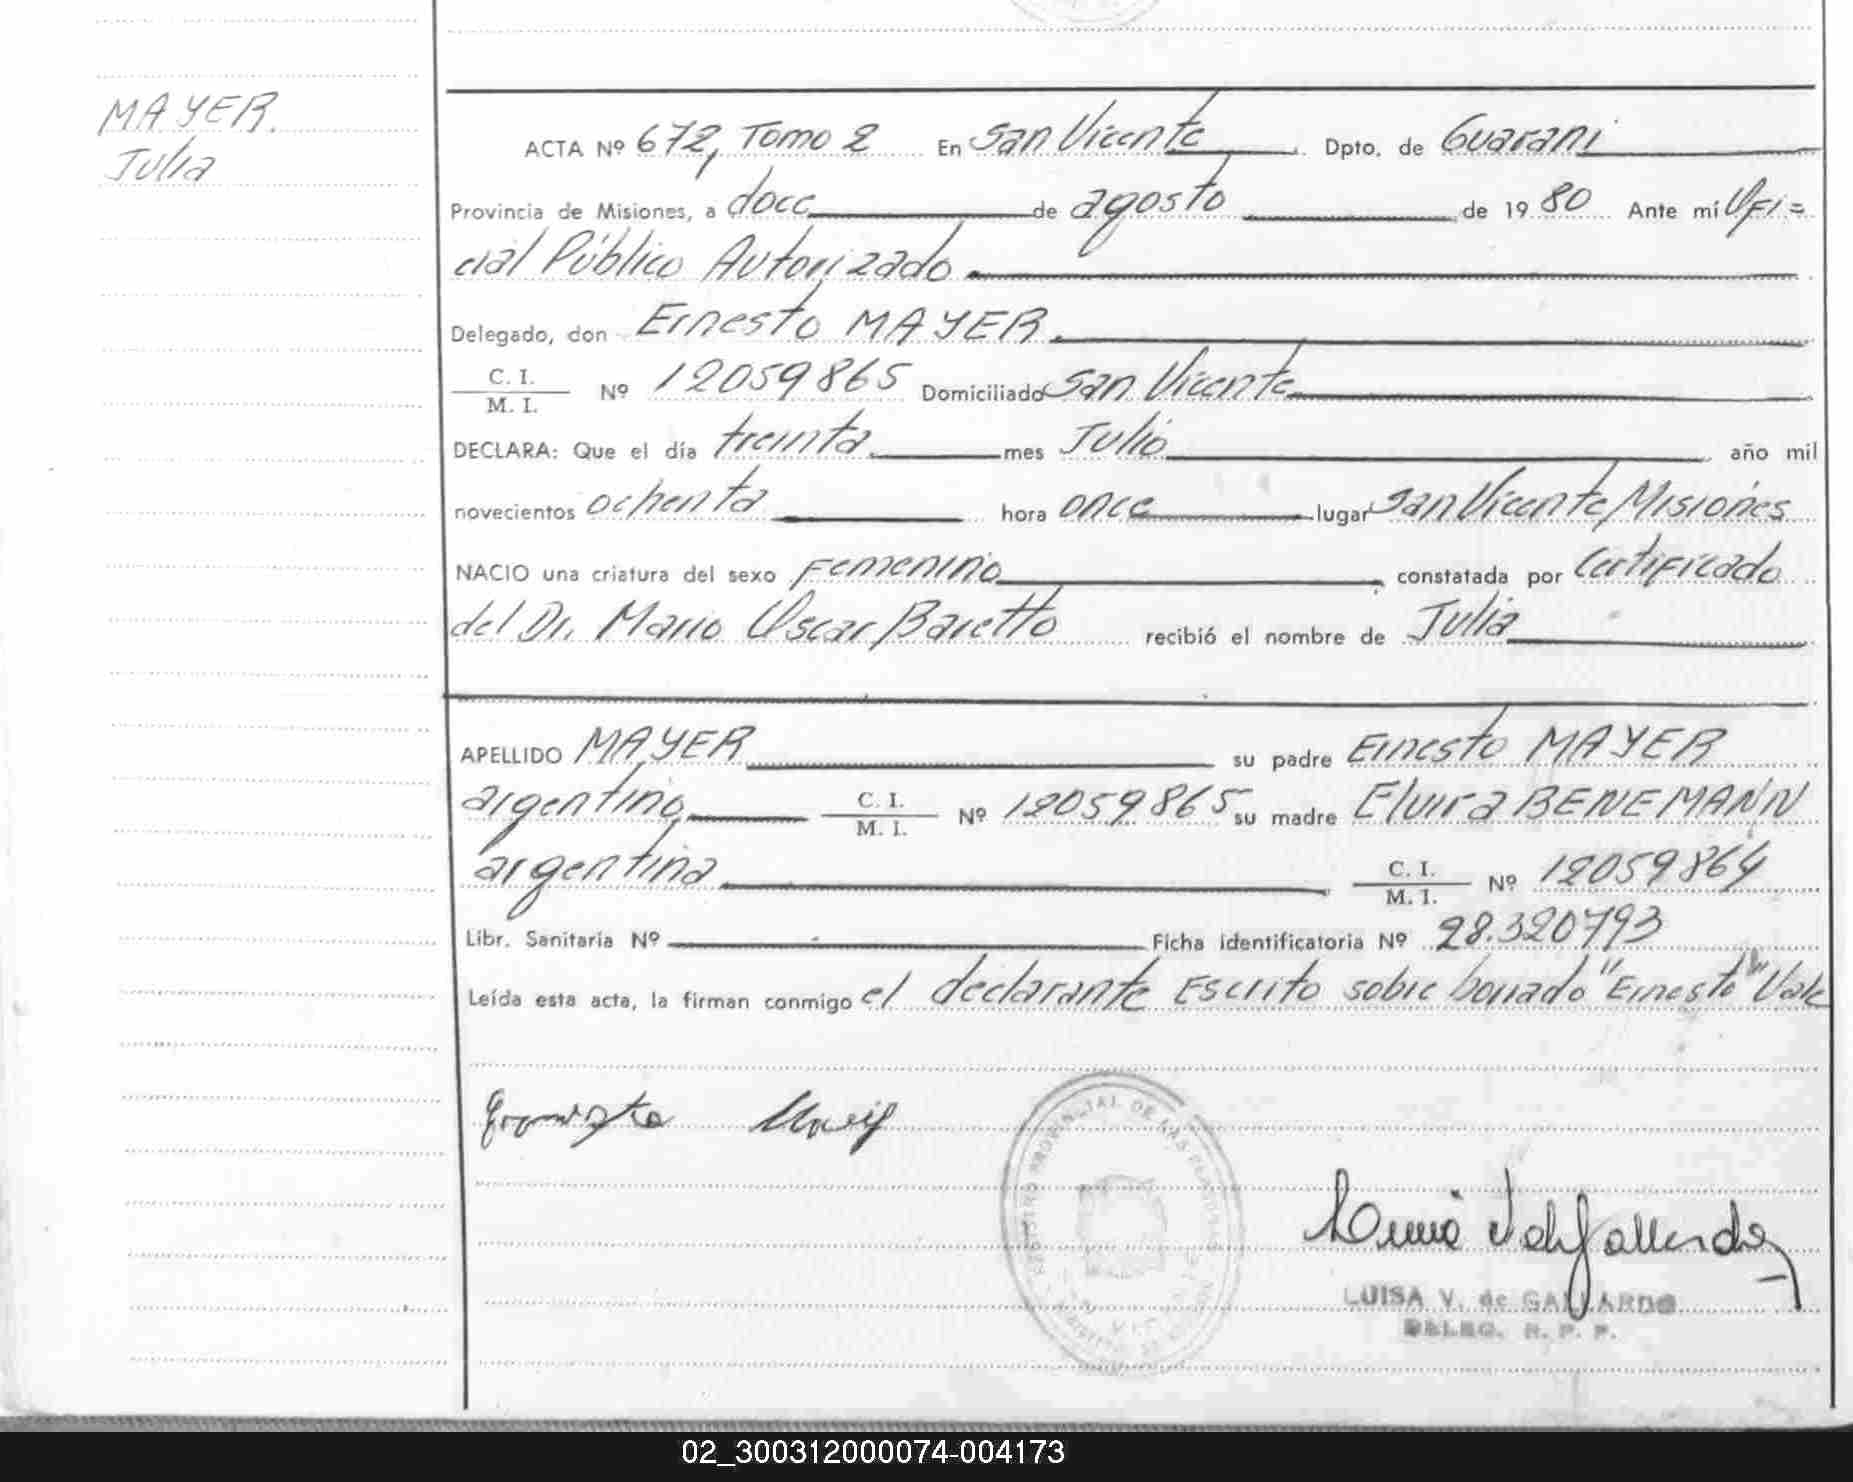 MAYER.
Julia
ACTA Nº 672, Tomo 2 En San Vicente Dpto. de Guarani
Provincia de Misiones, a doce de agosto de 1980 Ante mí Ofi=
cial Público Autorizado
Delegado, don Ernesto MAYER.
C. I.
M. I. Nº 12059865 Domiciliado San Vicente
DECLARA: Que el día treinta mes Julio año mil
novecientos ochenta hora once lugar San Vicente, Misiones
NACIO una criatura del sexo Femenino, constatada por Certificado
del Dr. Mario Oscar Baretto recibió el nombre de Julia
APELLIDO MAYER su padre Ernesto MAYER
argentino C. I.
M. I. Nº 12059865 su madre Elvira BENEMANN
argentina C. I.
M. I. Nº 12059864
Libr. Sanitaria Nº Ficha identificatoria Nº 28.320793
Leída esta acta, la firman conmigo el declarante Escrito sobre borrado "Ernesto" Vale
REGISTRO PROVINCIAL DE LAS PERSONAS
LUISA V. de GALLARDO
DELEG. R. P. P.
02_300312000074-004173